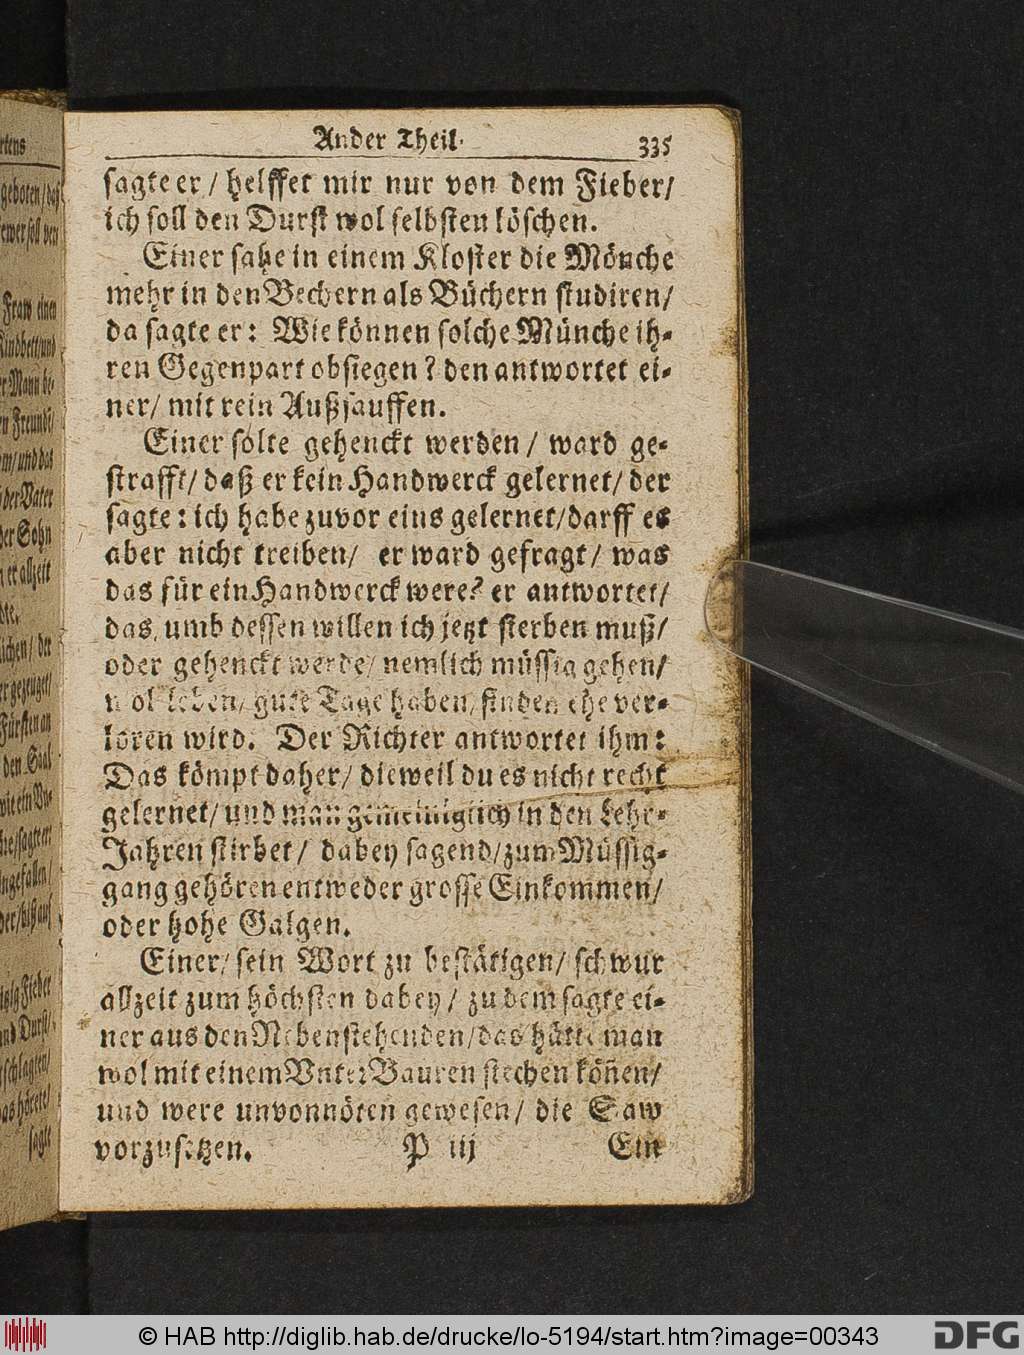 Ander Theil. 335
sagte er / helffet mir nur von dem Fieber /
ich soll den Durst wol selbsten löschen.
Einer sahe in einem Kloster die Mönche
mehr in den Bechern als Büchern studiren /
da sagte er: Wie können solche Münche ih-
ren Gegenpart obsiegen? den antwortet ei-
ner / mit rein Außsauffen.
Einer solte gehenckt werden / ward ge-
strafft / daß er kein Handwerck gelernet / der
sagte: ich habe zuvor eins gelernet / darff es
aber nicht treiben / er ward gefragt / was
das für ein Handwerck were? er antwortet /
das, umb dessen willen ich jetzt sterben muß /
oder gehenckt werde / nemlich müssig gehen /
wol leben / gute Tage haben / finden ehe ver-
loren wird. Der Richter antwortet ihm:
Das kömpt daher / dieweil du es nicht recht
gelernet / und man gemeiniglich in den Lehr-
Jahren stirbet / dabey sagend / zum Müssig-
gang gehören entweder grosse Einkommen /
oder hohe Galgen.
Einer / sein Wort zu bestätigen / schwur
allzeit zum höchsten dabey / zu dem sagte ei-
ner aus den Nebenstehenden / das hätte man
wol mit einem Unter Bauren stechen köñen /
und were unvonnöten gewesen / die Saw
vorzusetzen. P iij Ein
© HAB http://diglib.hab.de/drucke/lo-5194/start.htm?image=00343
DFG